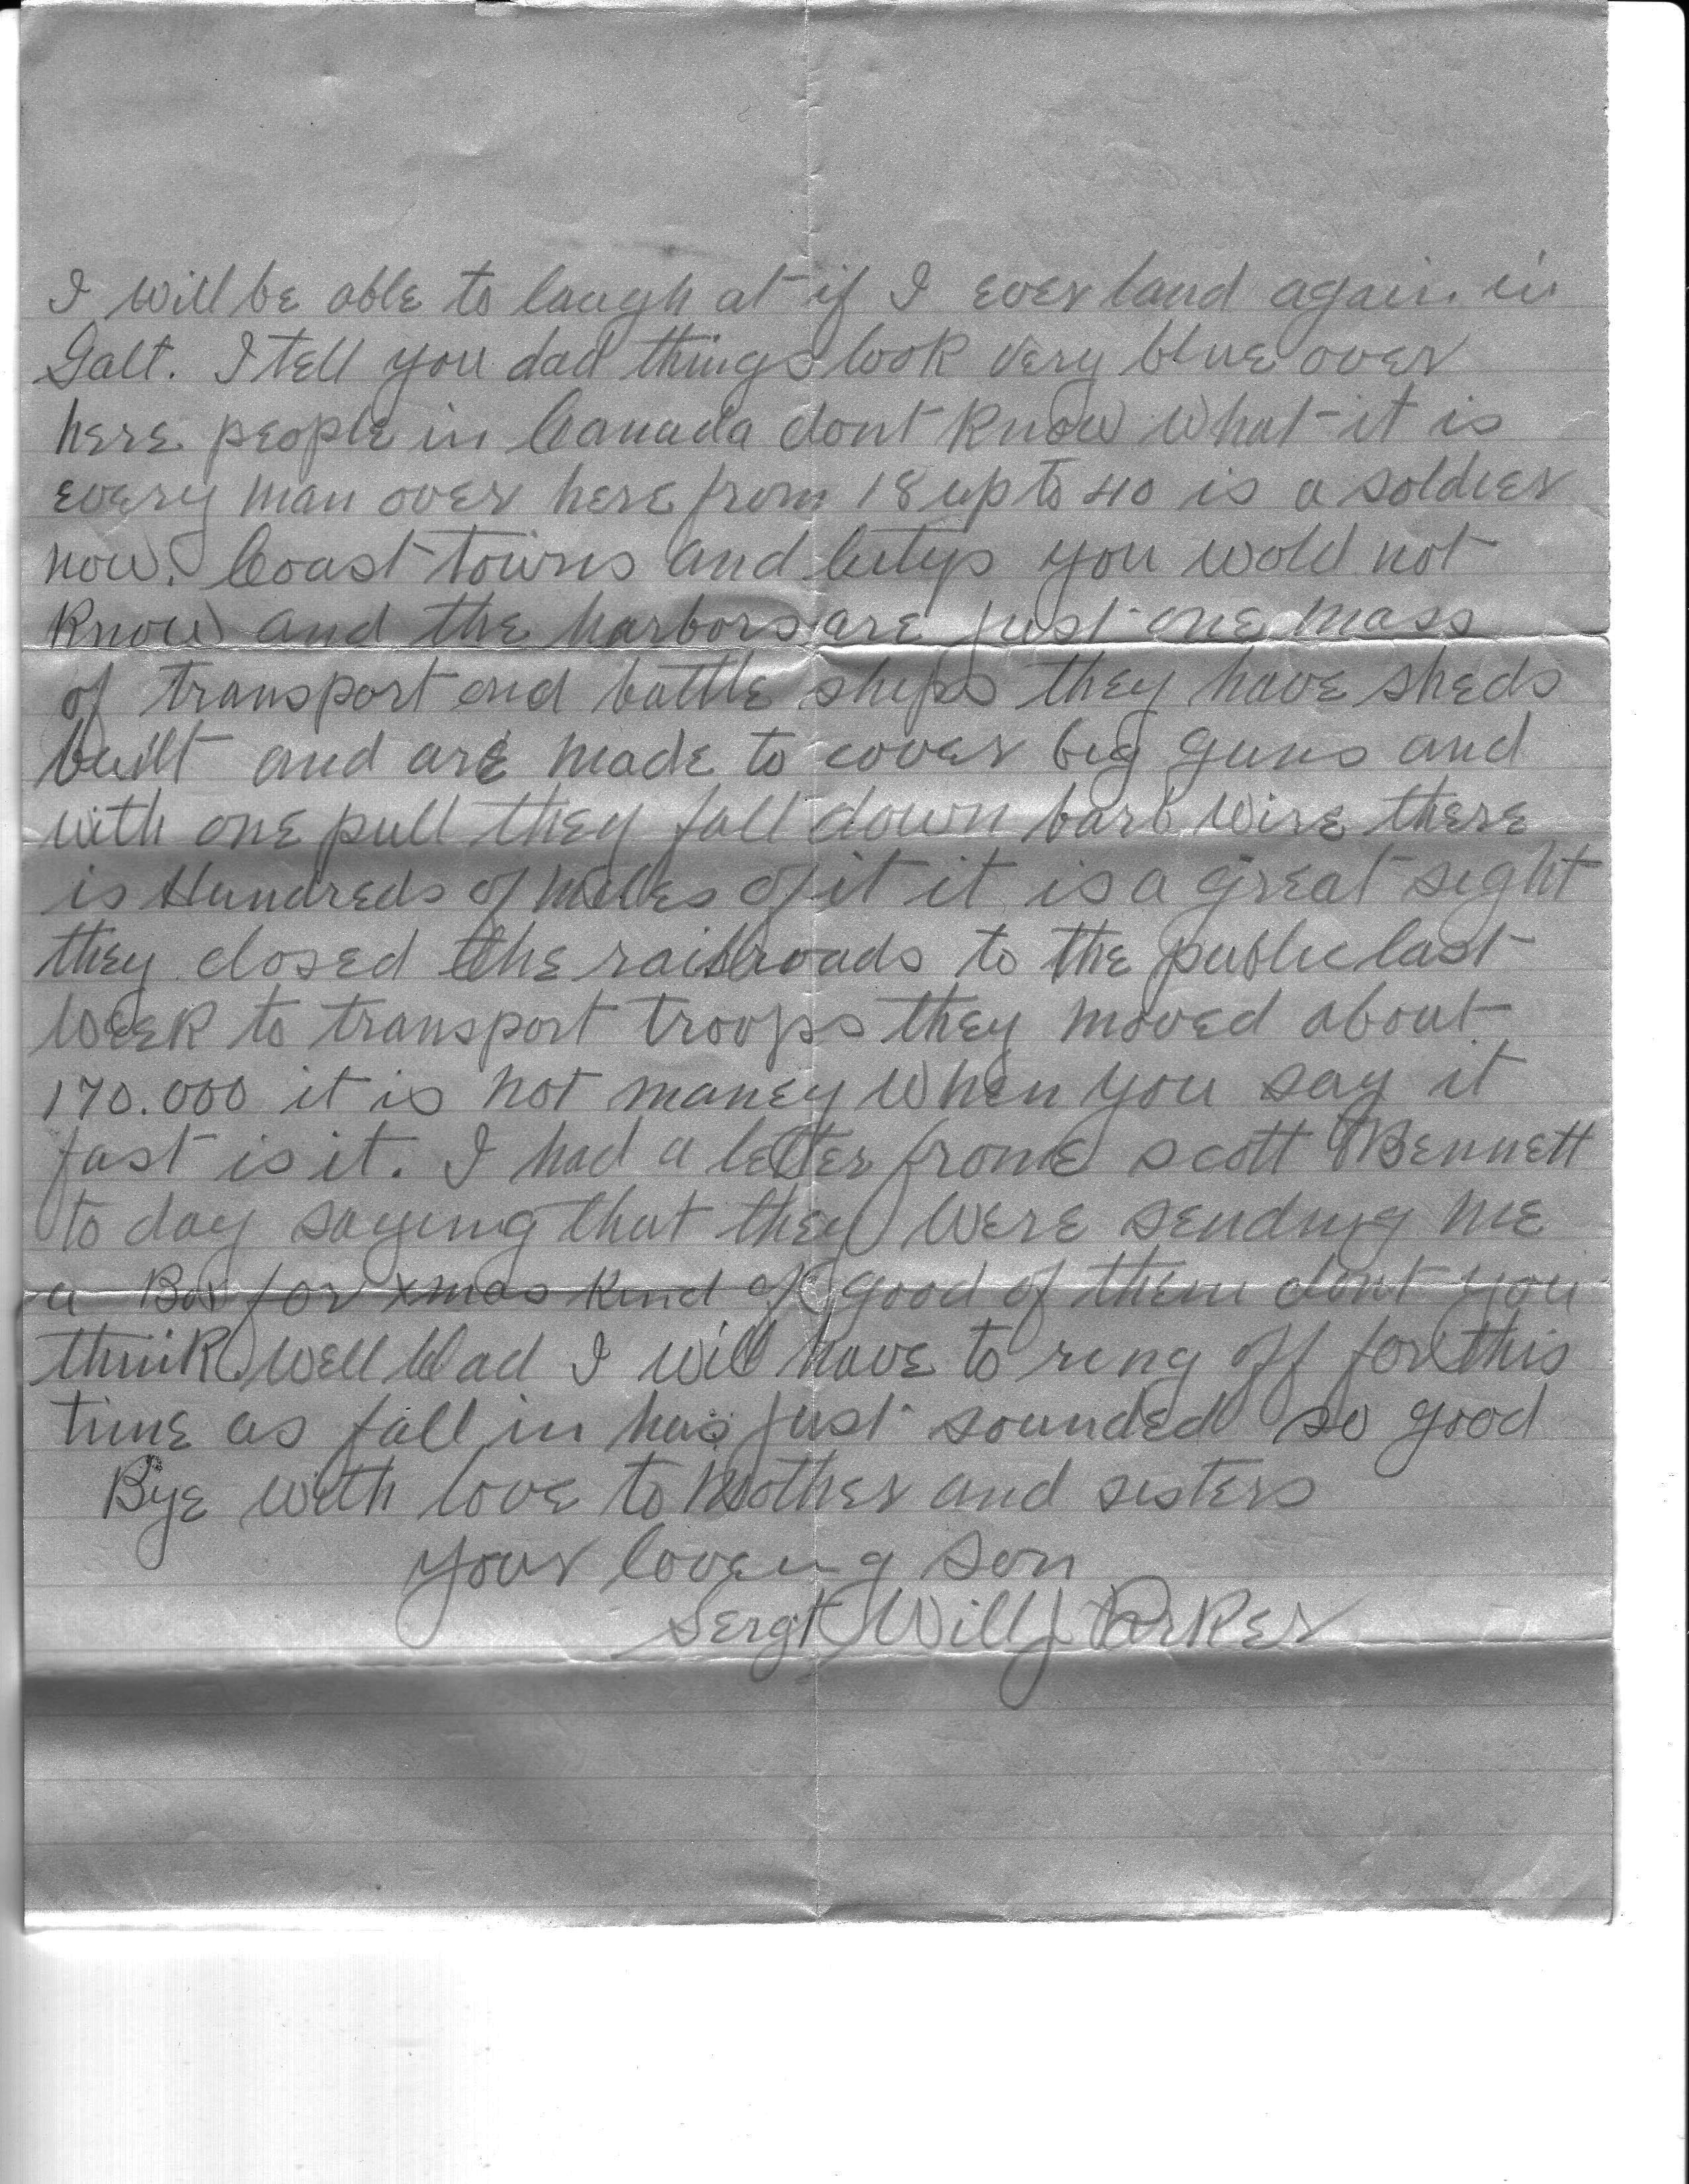 I will be able to laugh at if I ever land again in
Galt. I tell you dad things look very blue over
here people in Canada dont know what it is
every man over here from 18 up to 40 is a soldier
now. Coast towns and Citys you wold not
know and the harbors are just one mass
of transport and battle ships they have sheds
built and are made to cover big guns and
with one pull they fall down barb wire there
is Hundreds of miles of it it is a great sight
they closed the railroads to the public last
week to transport troops they moved about
170.000 it is not maney when you say it
fast is it. I had a letter frome scott Bennett
to day saying that they were sending me
a Box for xmas kind of good of them dont you
think well Dad I will have to ring off for this
time as fall in has just sounded so good
Bye with love to Mother and sisters
your loveing son
Sergt Will J. Parker